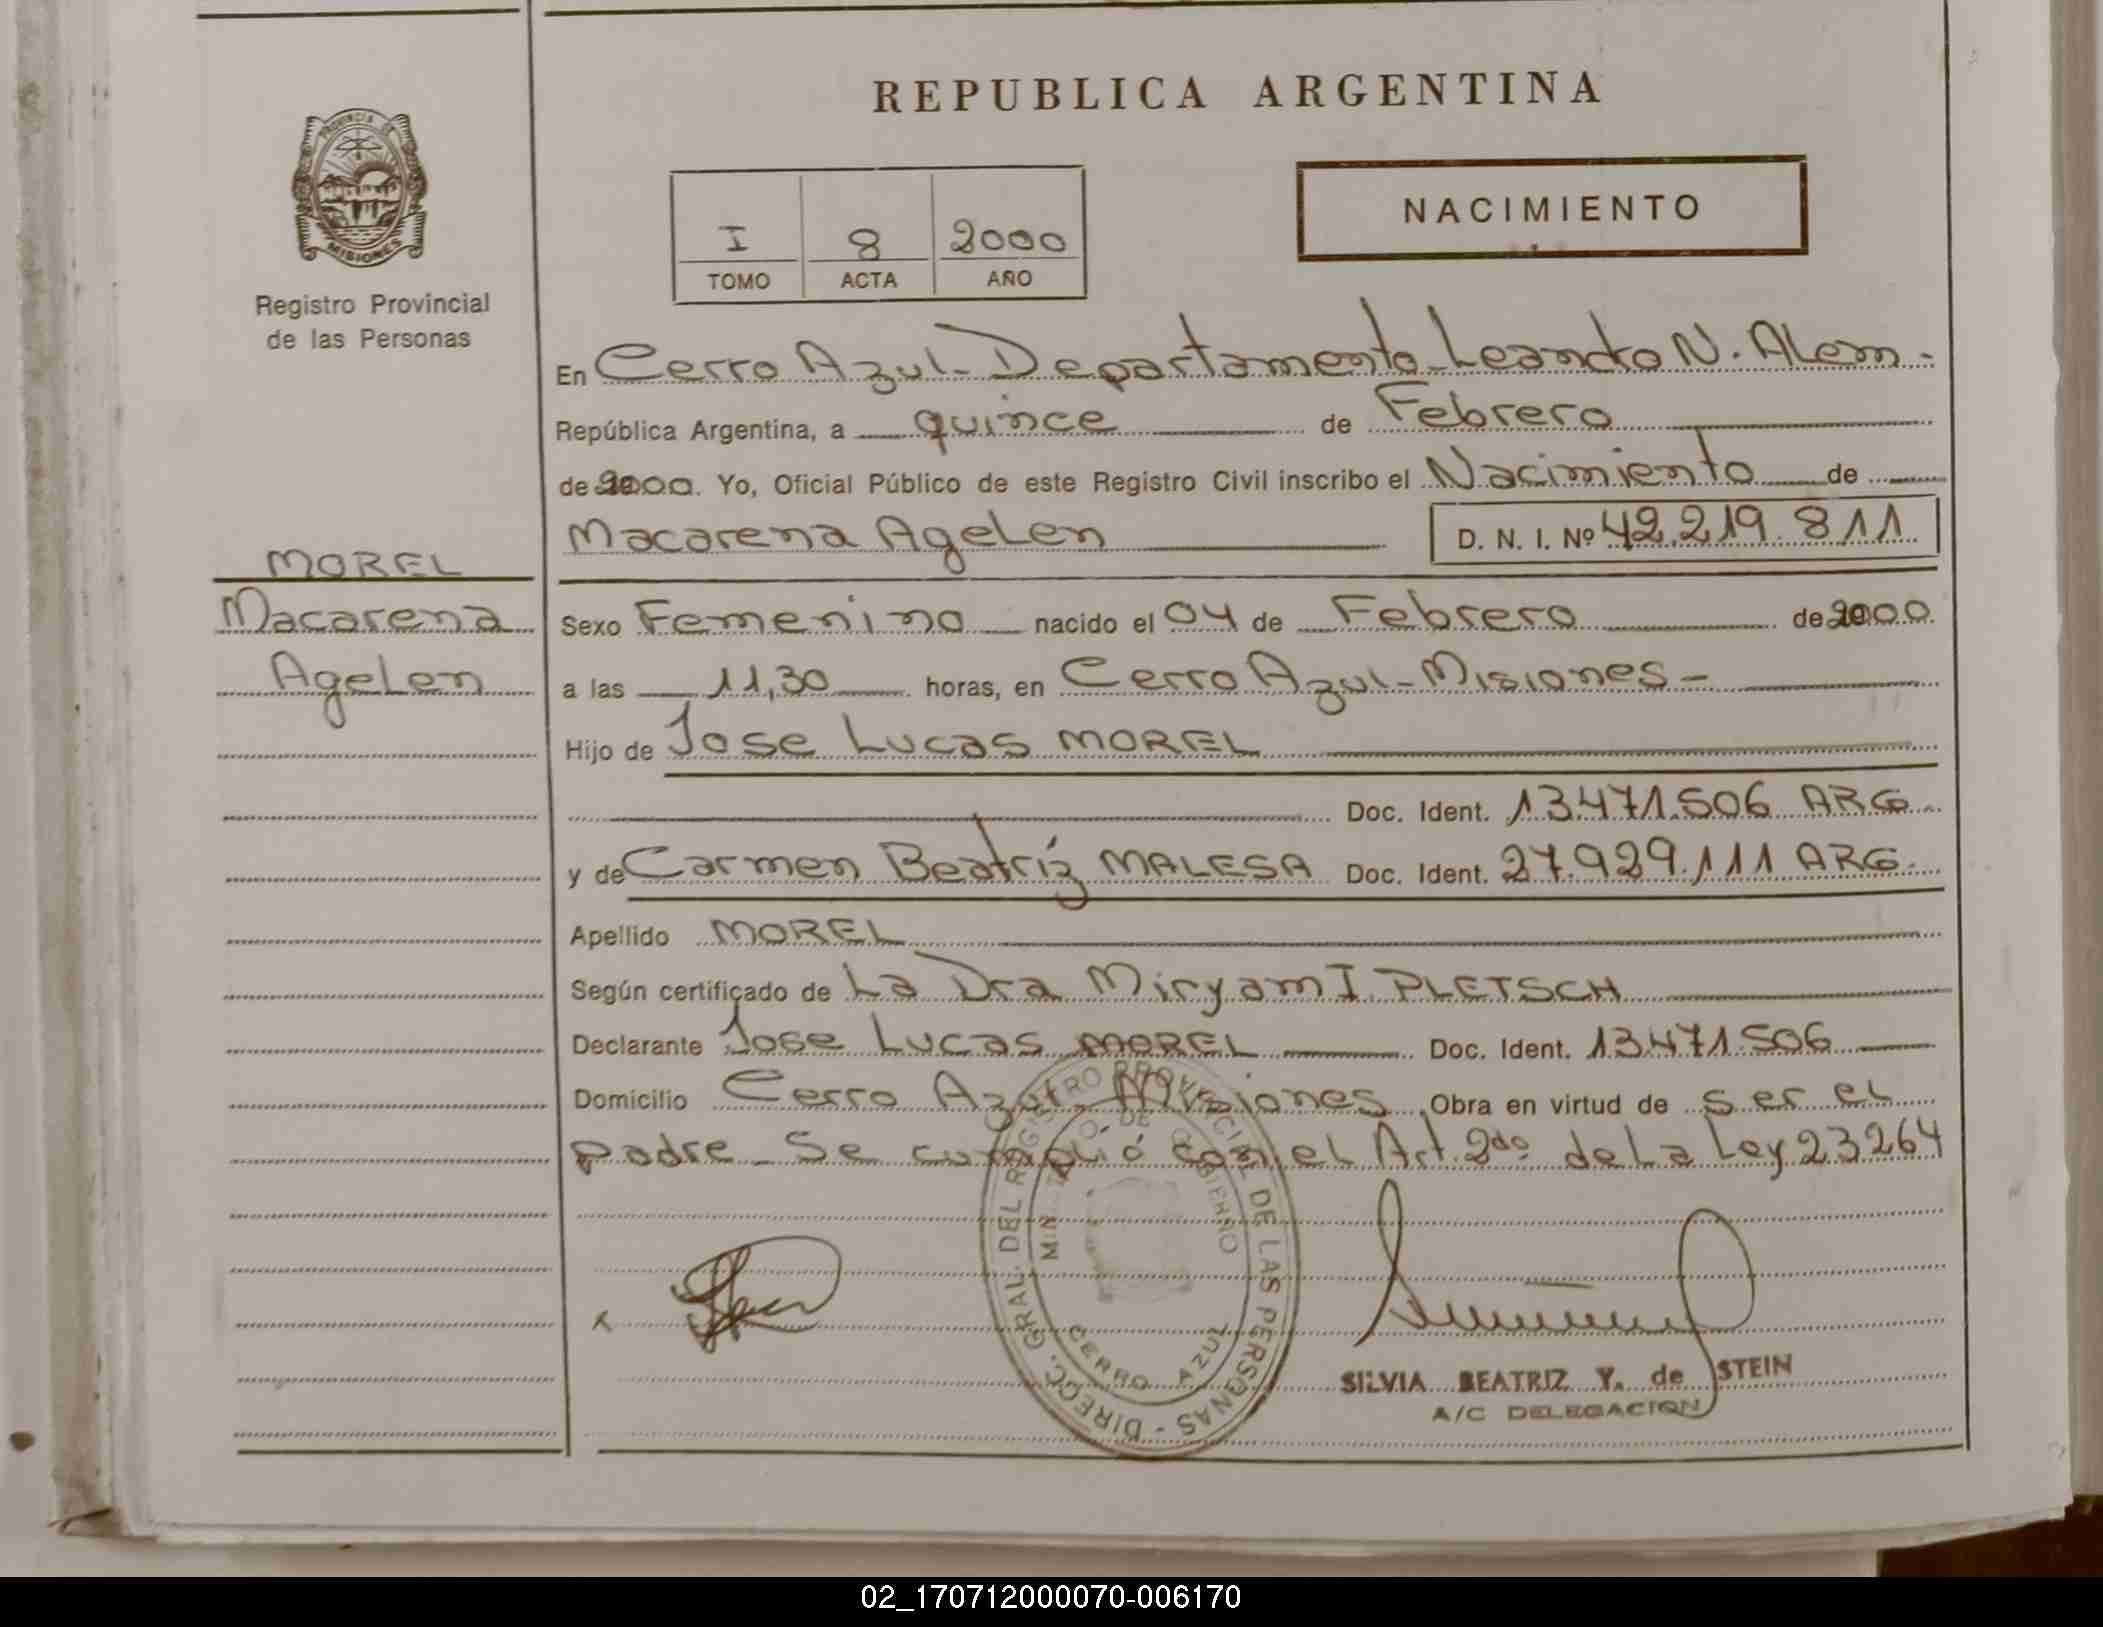 REPUBLICA ARGENTINA
PROVINCIA DE
MISIONES
Registro Provincial
de las Personas
I 8 2000
TOMO ACTA AÑO
NACIMIENTO
En Cerro Azul - Departamento Leandro N. Alem -
República Argentina, a quince de Febrero
de 2000. Yo, Oficial Público de este Registro Civil inscribo el Nacimiento de
Macarena Agelen D. N. I. Nº 42.219.811
MOREL
Macarena
Agelen
Sexo Femenino nacido el 04 de Febrero de 2000.
a las 11,30 horas, en Cerro Azul - Misiones -
Hijo de Jose Lucas MOREL
Doc. Ident. 13.471.506 ARG
y de Carmen Beatríz MALESA Doc. Ident. 27.929.111 ARG.
Apellido MOREL
Según certificado de La Dra Miryam I. PLETSCH
Declarante Jose Lucas MOREL Doc. Ident. 13.471.506
Domicilio Cerro Azul - Misiones Obra en virtud de ser el
padre - Se cumplió con el Art. 2do de La Ley 23264
DIRECC. GRAL. DEL REGISTRO PROVINCIAL DE LAS PERSONAS -
CERRO AZUL
SILVIA BEATRIZ Y. de STEIN
A/C DELEGACION
02_170712000070-006170